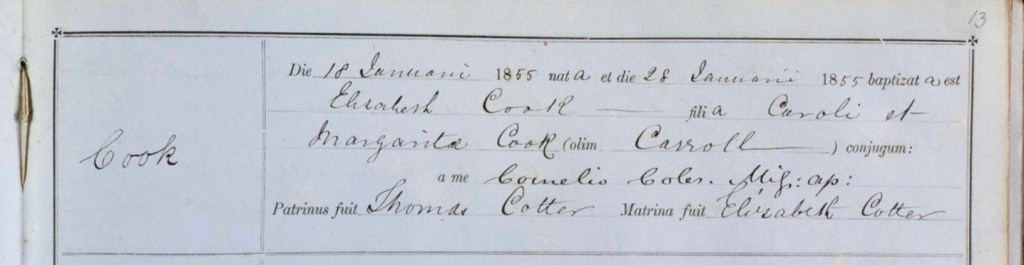 13
Die 18 Januarii 1855 nata et die 28 Januarii 1855 baptizata est
Elizabeth Cook filia Caroli et
Cook
Margaritæ Cook (olim Carroll) conjugum:
a me Cornelio Coles. Miss: ap:
Patrinus fuit Thomas Cotter Matrina fuit Elizabeth Cotter